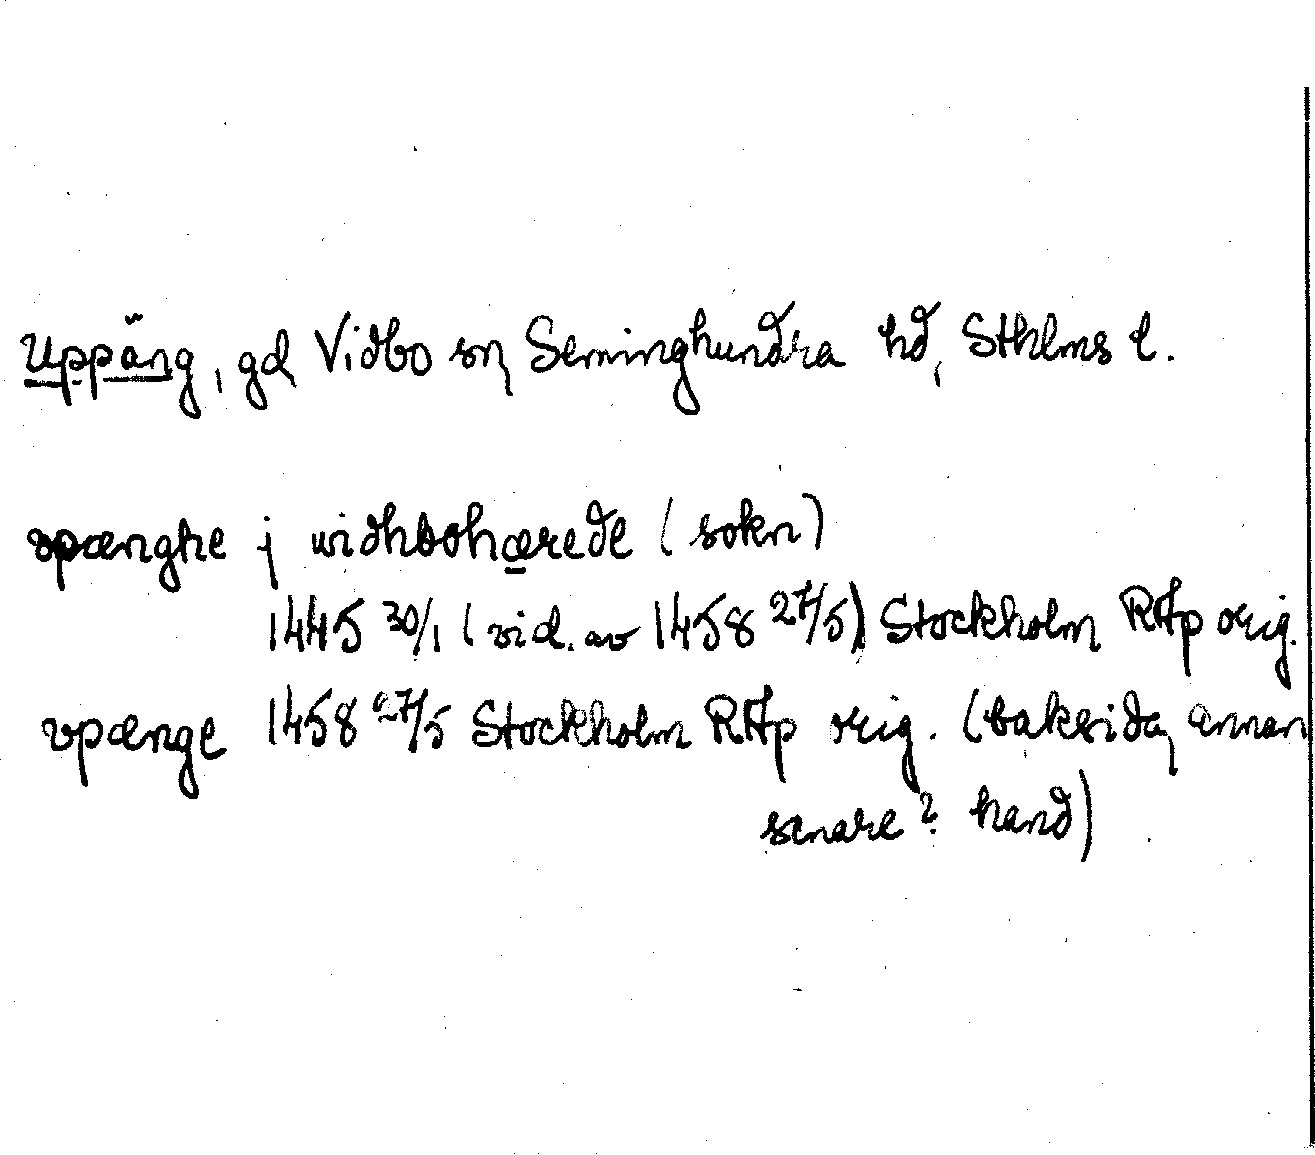 Uppäng, gd Vidbo sn, Seminghundra hd, Sthlms l.
vpænghe j widhbohærede (sokn)
1445 30/1 (vid. av 1458 27/5) Stockholm RAp orig.
vpænge 1458 27/5 Stockholm RAp orig. (baksida, annan
senare? hand)